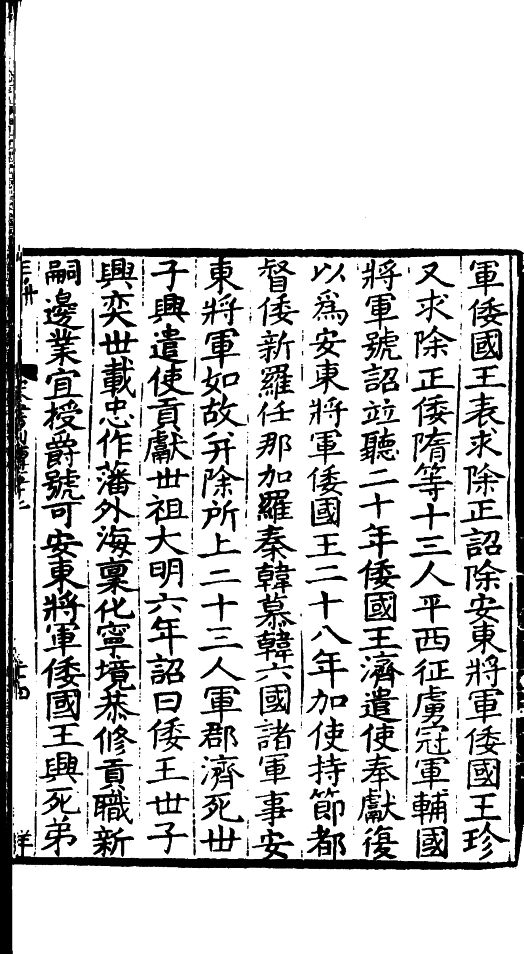 軍倭國王表求除正詔除安東將軍倭國王珍
又求除正倭隋等十三人平西征虜冠軍輔國
將軍號詔並聽二十年倭國王濟遣使奉獻復
以為安東將軍倭國王二十八年加使持節都
督倭新羅任那加羅秦韓慕韓六國諸軍事安
東將軍如故并除所上二十三人軍郡濟死世
子興遣使貢獻世祖大明六年詔曰倭王世子
興奕世載忠作藩外海稟化寧境恭修貢職新
嗣邊業宜授爵號可安東將軍倭國王興死弟